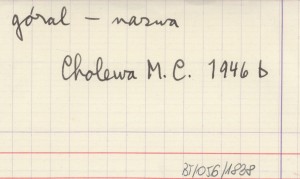 góral – nazwa
Cholewa M. C. 1946 b
BJ/056/1838